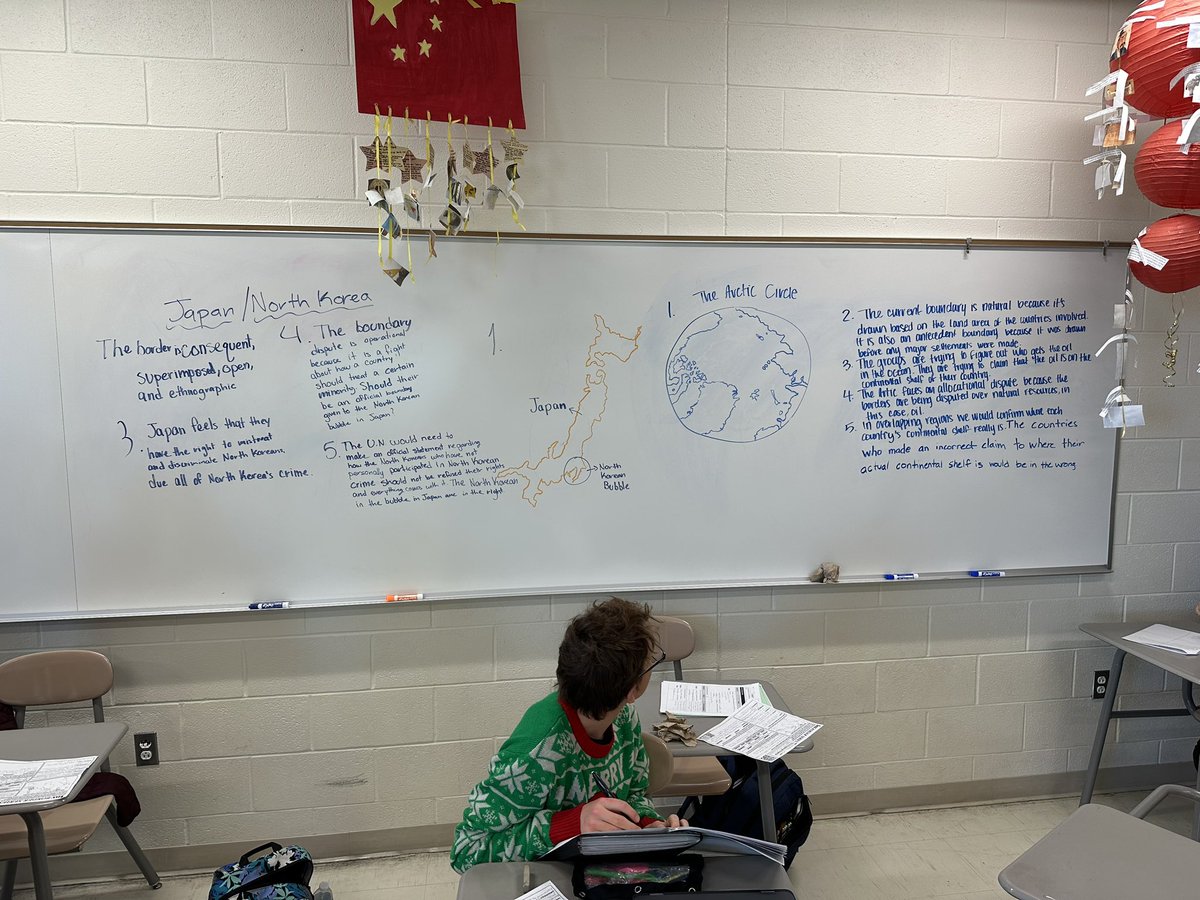 Japan/North Korea
The border is consequent,
superimposed, open,
and ethnographic
3. Japan feels that they
have the right to mistreat
and discriminate North Koreans
due all of North Korea's crime.
4. The boundary
dispute is operational
because it is a fight
about how a country
should treat a certain
minority. Should their
be an official boundary
given to the North Korean
bubble in Japan?
5. The U.N would need to
make an official statement regarding
how the North Koreans who have not
personally participated in North Korean
crime should not be refused their rights
and everything comes with it. The North Korean
in the bubble in Japan are in the right.
1.
Japan
North
Korean
Bubble
1. The Arctic Circle
2. The current boundary is natural because it's
drawn based on the land area of the countries involved.
It is also an antecedent boundary because it was drawn
before any major settlements were made.
3. The groups are trying to figure out who gets the oil
in the ocean. They are trying to claim that the oil is on the
continental shelf of their country.
4. The Artic faces an allocational dispute because the
borders are being disputed over natural resources, in
this case, oil.
5. In overlapping regions we would confirm where each
country's continental shelf really is. The countries
who made an incorrect claim to where their
actual continental shelf is would be in the wrong.